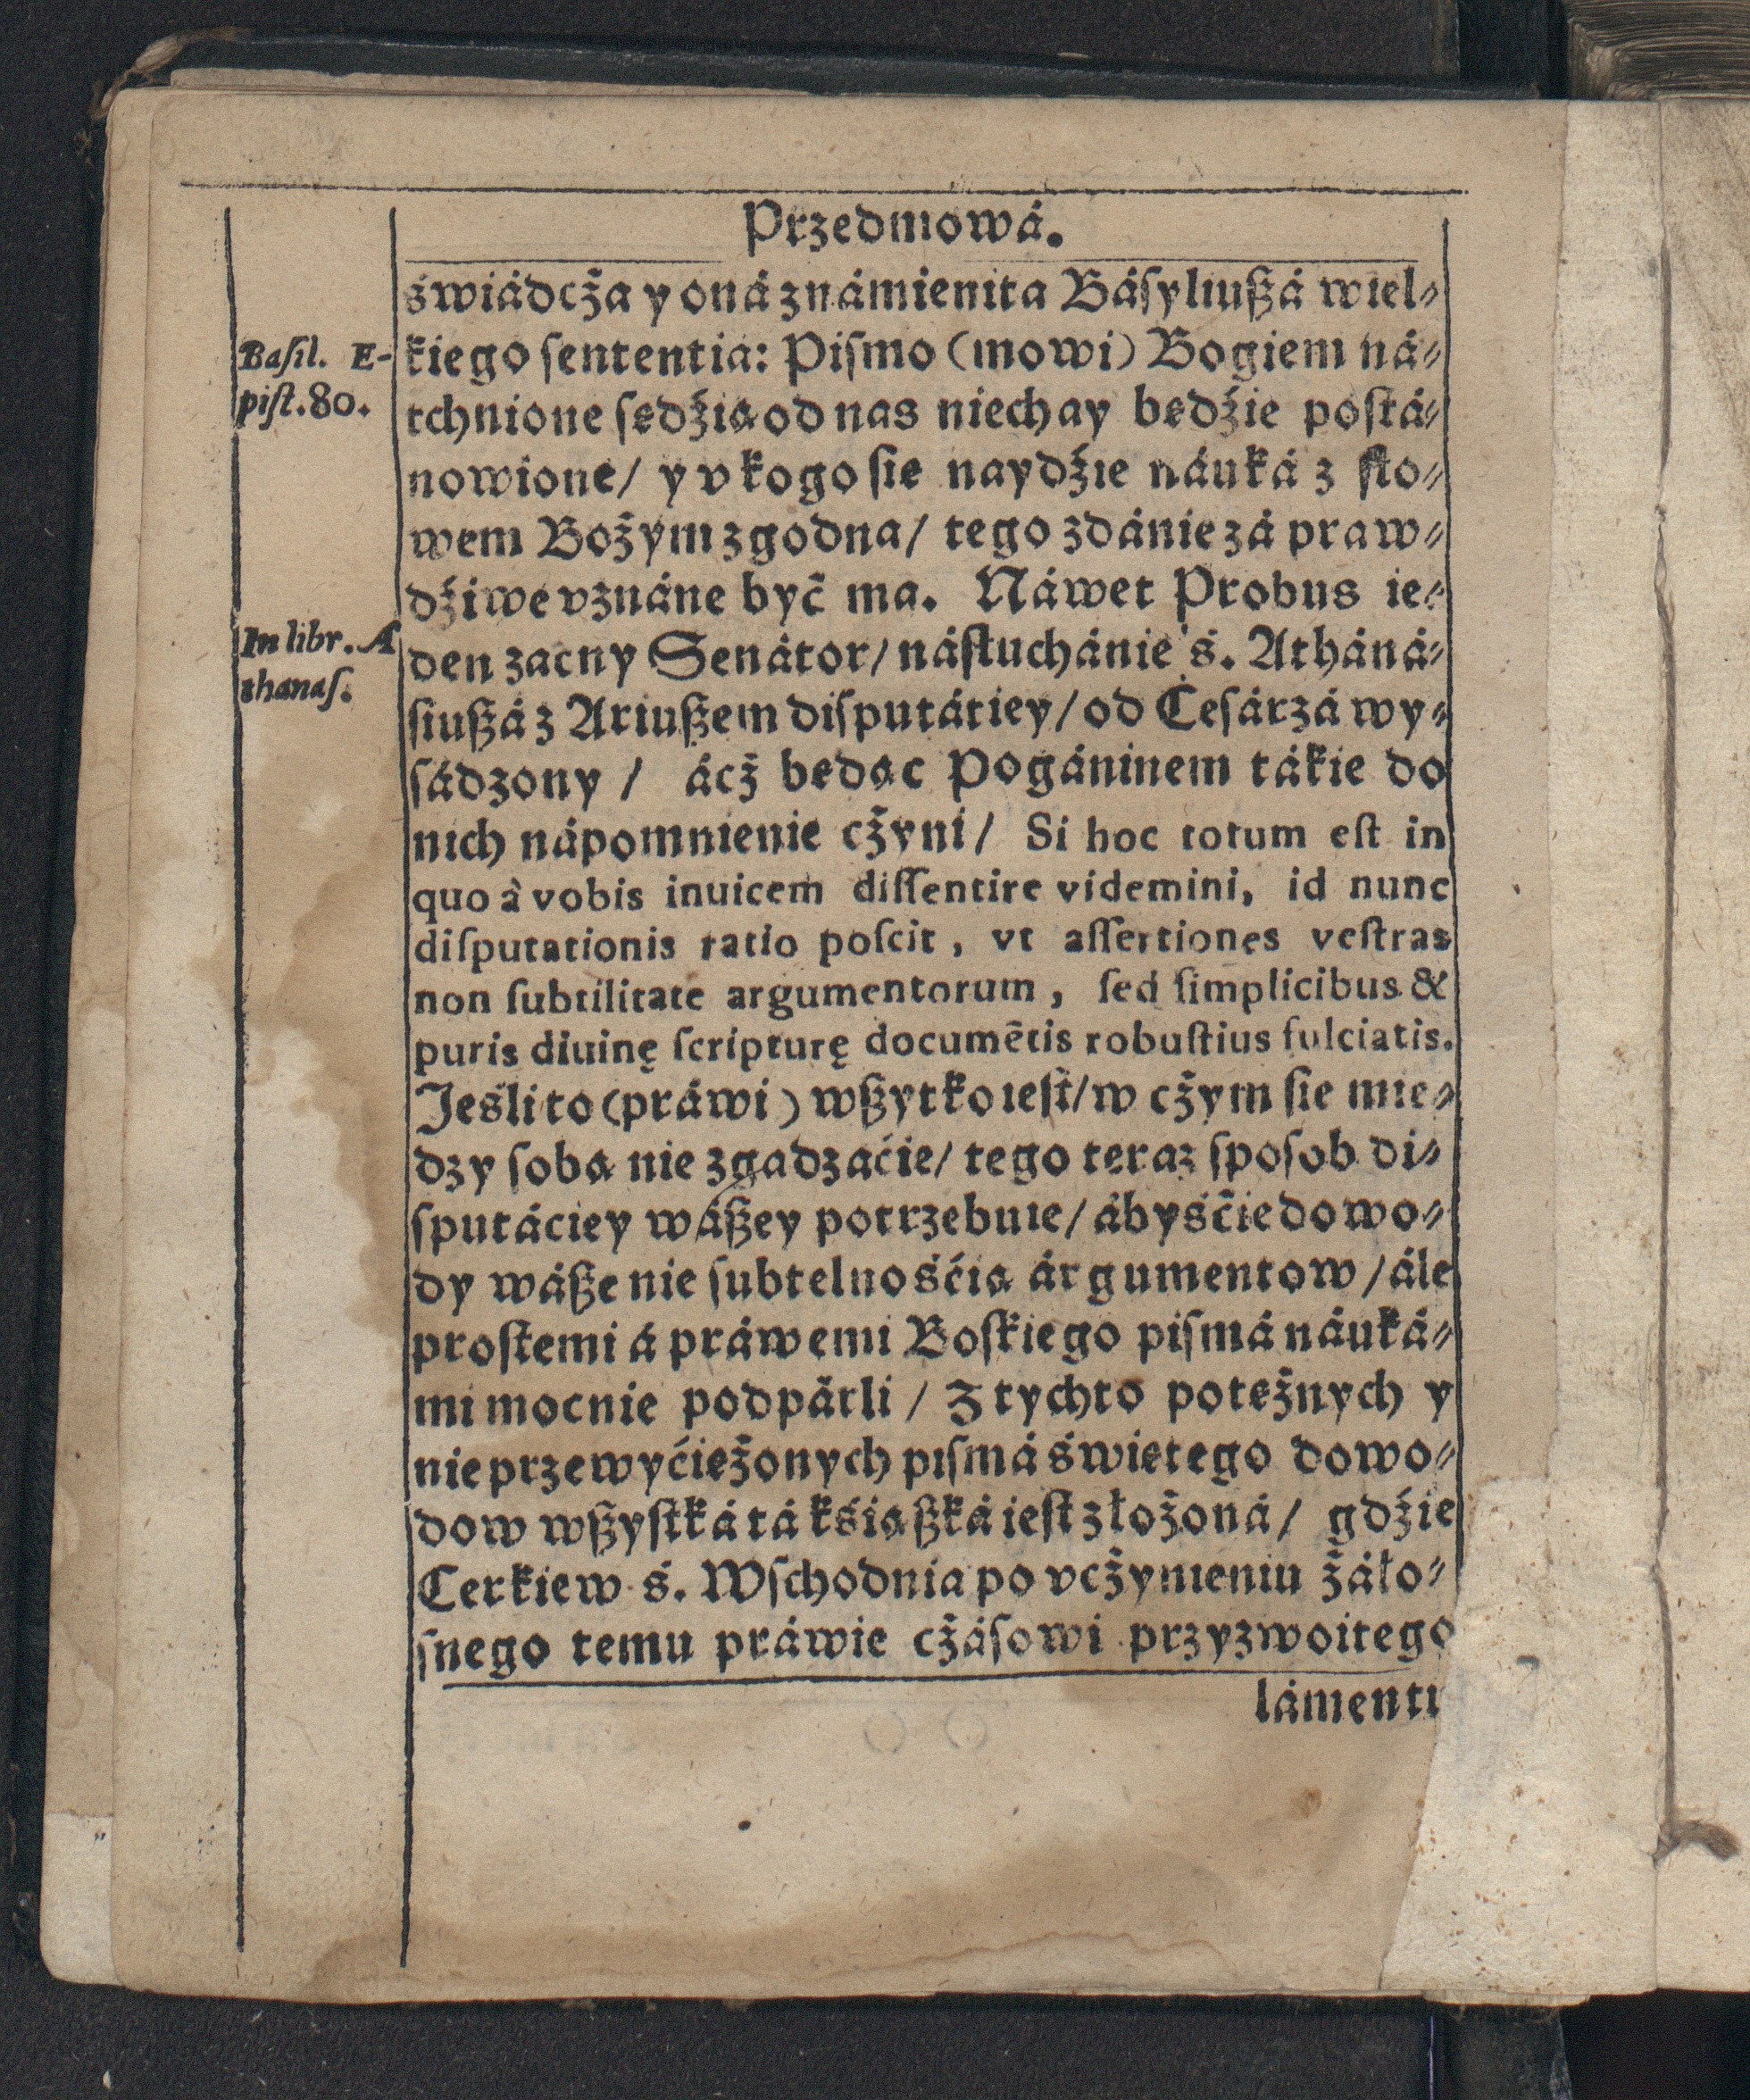 Przedmowá.
świádcża y oná známienita Báſyliuſzá wiel⸗
Baſil. E-
piſt. 80.
kiego ſententia: Piſmo (mowi) Bogiem ná⸗
tchnione ſędźią od nas niechay będźie poſtá⸗
nowione/ y v kogo ſie naydźie náuká z ſło⸗
wem Bożym zgodna/ tego zdánie zá praw⸗
dźiwe vznáne być ma. Náwet Probus ie⸗
In libr. A
thanaſ.
den zacny Senátor/ náſłuchánie ś. Atháná⸗
ſiuſzá z Ariuſzem diſputátiey/ od Ceſárzá wy⸗
ſádzony / ácż będąc Pogáninem tákie do
nich nápomnienie cżyni/ Si hoc totum eſt in
quo à vobis inuicem diſſentire videmini, id nunc
diſputationis ratio poſcit, vt aſſertiones veſtras
non ſubtilitate argumentorum, ſed ſimplicibus &
puris diuinę ſcripturę documētis robuſtius fulciatis.
Jeśli to (práwi) wſzytko ieſt/ w cżym ſie mie⸗
dzy ſobą nie zgadzaćie/ tego teraz ſpoſob di⸗
ſputáciey wáſzey potrzebuie/ ábyśćie dowo⸗
dy wáſze nie ſubtelnośćią árgumentow/ ále
proſtemi á práwemi Boſkiego piſmá náuká⸗
mi mocnie podpárli / Z tychto potężnych y
nieprzewyćiężonych piſmá świętego dowo⸗
dow wſzyſtká tá kśiąſzká ieſt złożoná/ gdźie
Cerkiew ś. Wſchodnia po vcżynieniu żáło⸗
ſnego temu práwie cżáſowi przyzwoitego
lámentu